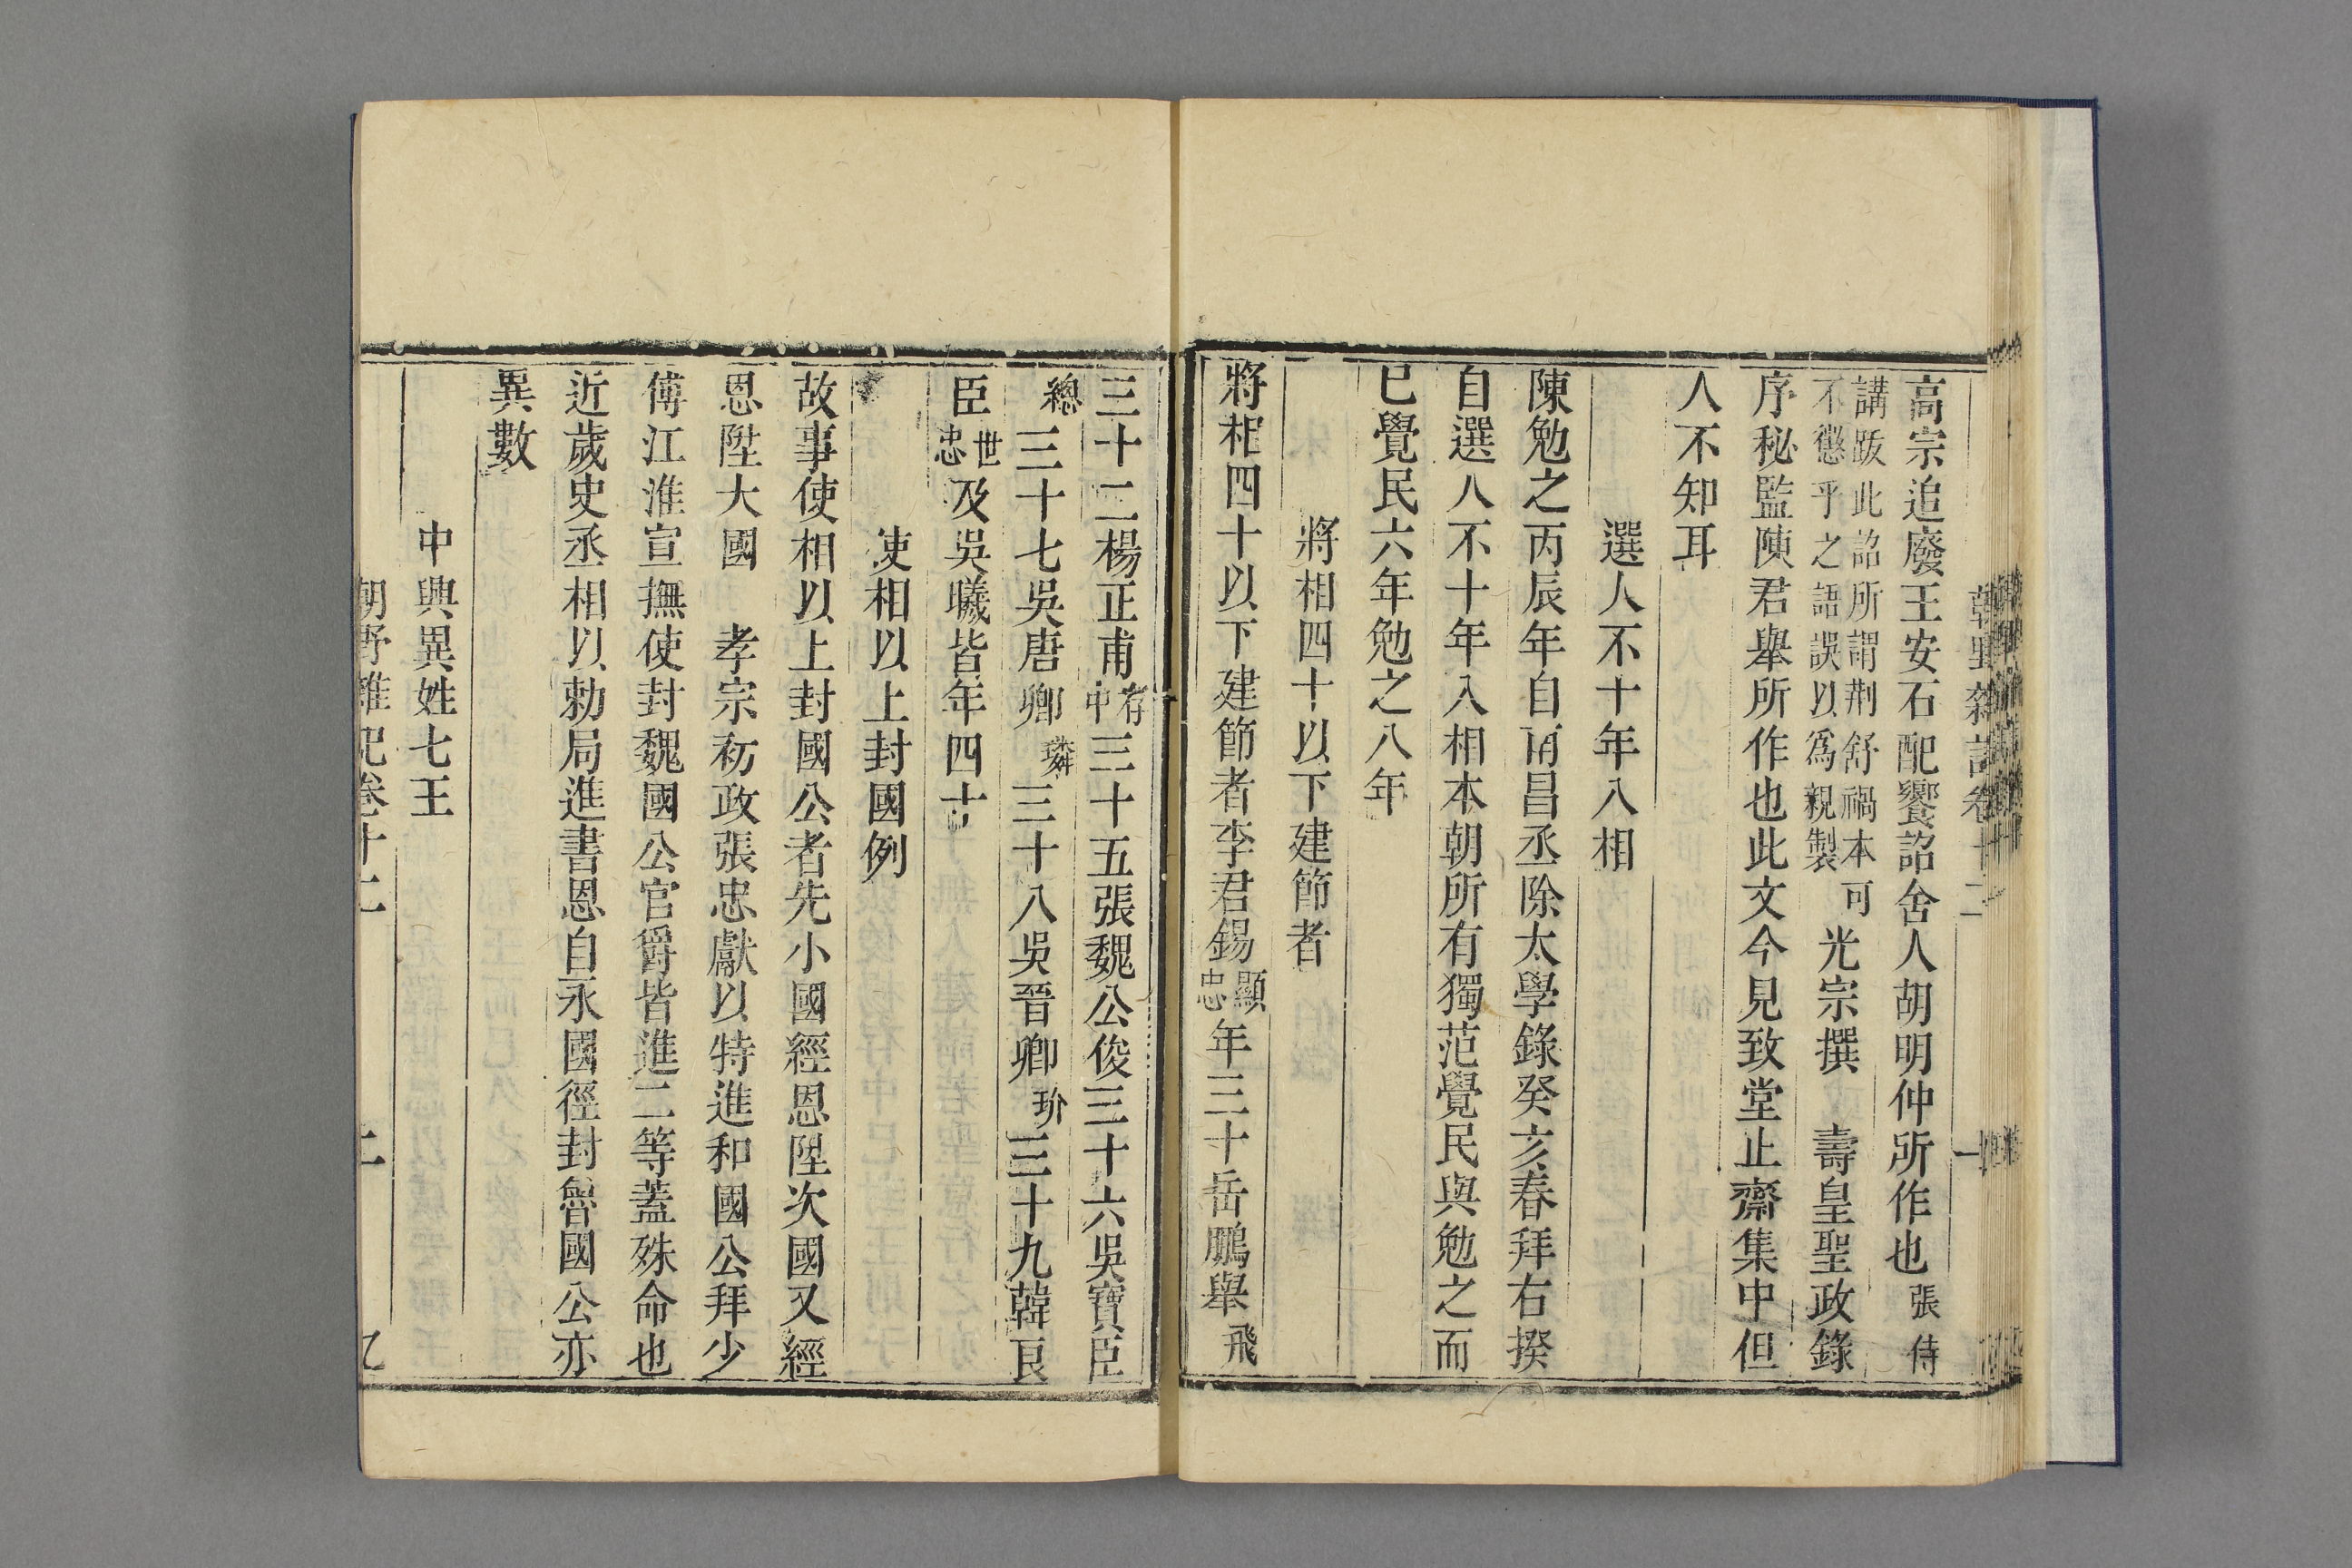 朝野雜記卷十二 一
高宗追廢王安石配饗詔舍人胡明仲所作也張侍
講跋此詔所謂荆舒禍本可
不懲乎之語誤以爲親製光宗撰 壽皇聖政錄
序秘監陳君舉所作也此文今見致堂止齋集中但
人不知耳
選人不十年入相
陳勉之丙辰年自甯昌丞除太學錄癸亥春拜右揆
自選人不十年入相本朝所有獨范覺民與勉之而
已覺民六年勉之八年
將相四十以下建節者
將相四十以下建節者李君錫顯忠年三十岳鵬舉飛
三十二楊正甫存中三十五張魏公俊三十六吳寶臣
總三十七吳唐卿璘三十八吳晉卿玠三十九韓良
臣世忠及吳曦皆年四十
使相以上封國例
故事使相以上封國公者先小國經恩陞次國又經
恩陞大國 孝宗初政張忠獻以特進和國公拜少
傅江淮宣撫使封魏國公官爵皆進二等蓋殊命也
近歲史丞相以勅局進書恩自永國徑封魯國公亦
異數
中興異姓七王
朝野雜記卷十二 二